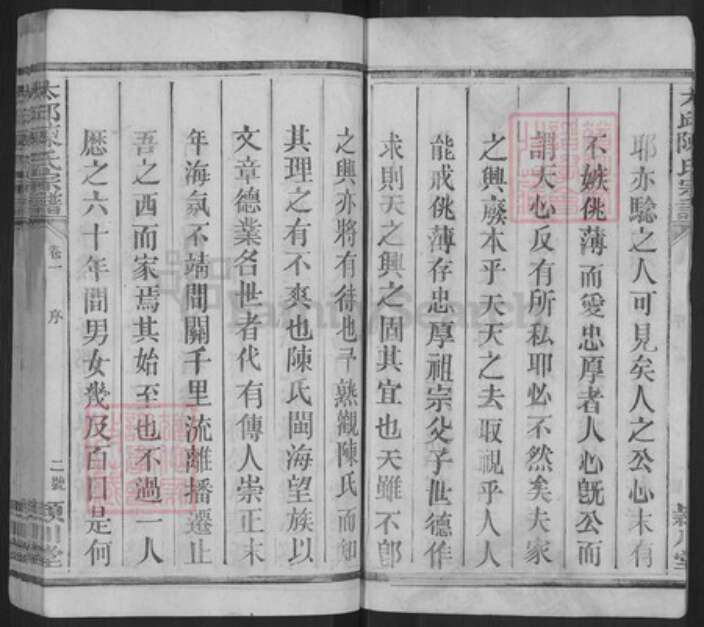 太邱陳氏宗譜
潁川堂
耶亦驗之人可見矣人之公心未有
不嫉佻薄而愛忠厚者人心旣公而
謂天心反有所私耶必不然矣夫家
之興廢本乎天天之去取視乎人人
能戒佻薄存忠厚祖宗父子世德作
求則天之興之固其宜也天雖不卽
之興亦將有待也予熟觀陳氏而知
其理之有不爽也陳氏閩海望族以
文章德業名世者代有傳人崇正末
年海氛不靖間關千里流離播遷止
吾之西而家焉其始至也不過一人
歷之六十年間男女幾及百口是何
太邱陳氏宗譜
卷一
序
二號
潁川堂
FamilySearch